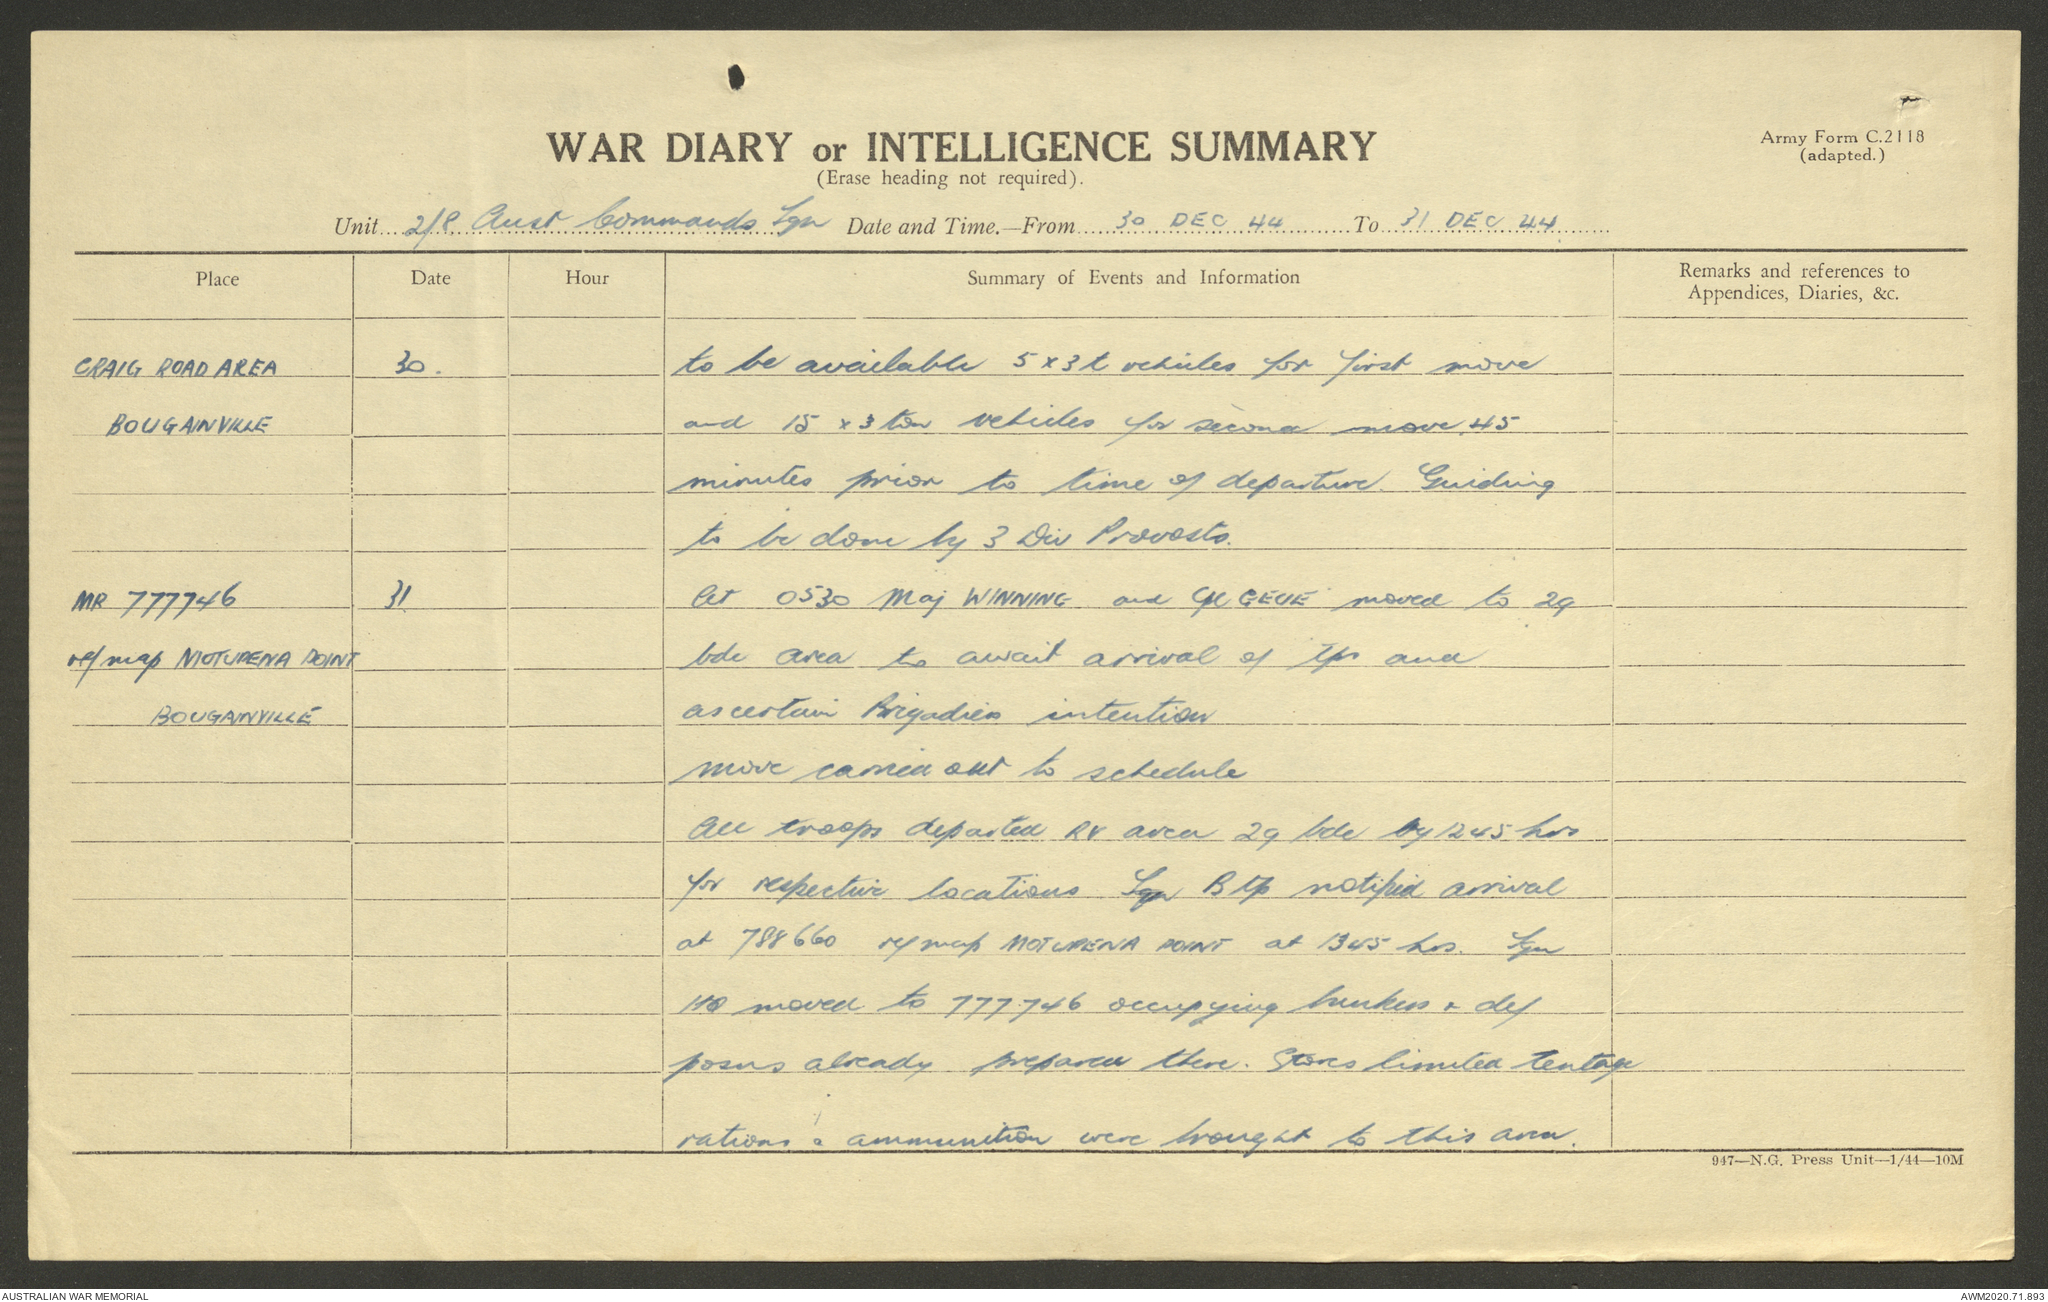 WAR DIARY or INTELLIGENCE SUMMARY
Army Form C.2118
(adapted.)
(Erase heading not required).
Unit 2/8 Aust Commando Sqn Date and Time.—From 30 DEC 44 To 31 DEC 44
Place Date Hour Summary of Events and Information Remarks and references to
Appendices, Diaries, &c.
CRAIG ROAD AREA 30. to be available 5 x 3 t vehicles for first move
BOUGAINVILLE and 15 x 3 ton vehicles for second move 45
minutes prior to time of departure. Guiding
to be done by 3 Div Provosts.
MR 777746 31 At 0530 Maj WINNING and moved to 29
ref map MOTUPENA POINT bde area to await arrival of tps and
BOUGAINVILLE ascertain Brigadiers intention
move carried out to schedule
All troops departed RV area 29 bde by 1245 hrs
for respective locations Sqn B tp notified arrival
at 788660 ref map MOTUPENA POINT at 1345 hrs. Sqn
HQ moved to 777746 occupying bunkers + def
posns already prepared there. Stores limited tentage
rations & ammunition were brought to this area.
947—N.G. Press Unit—1/44—10M
AUSTRALIAN WAR MEMORIAL AWM2020.71.893